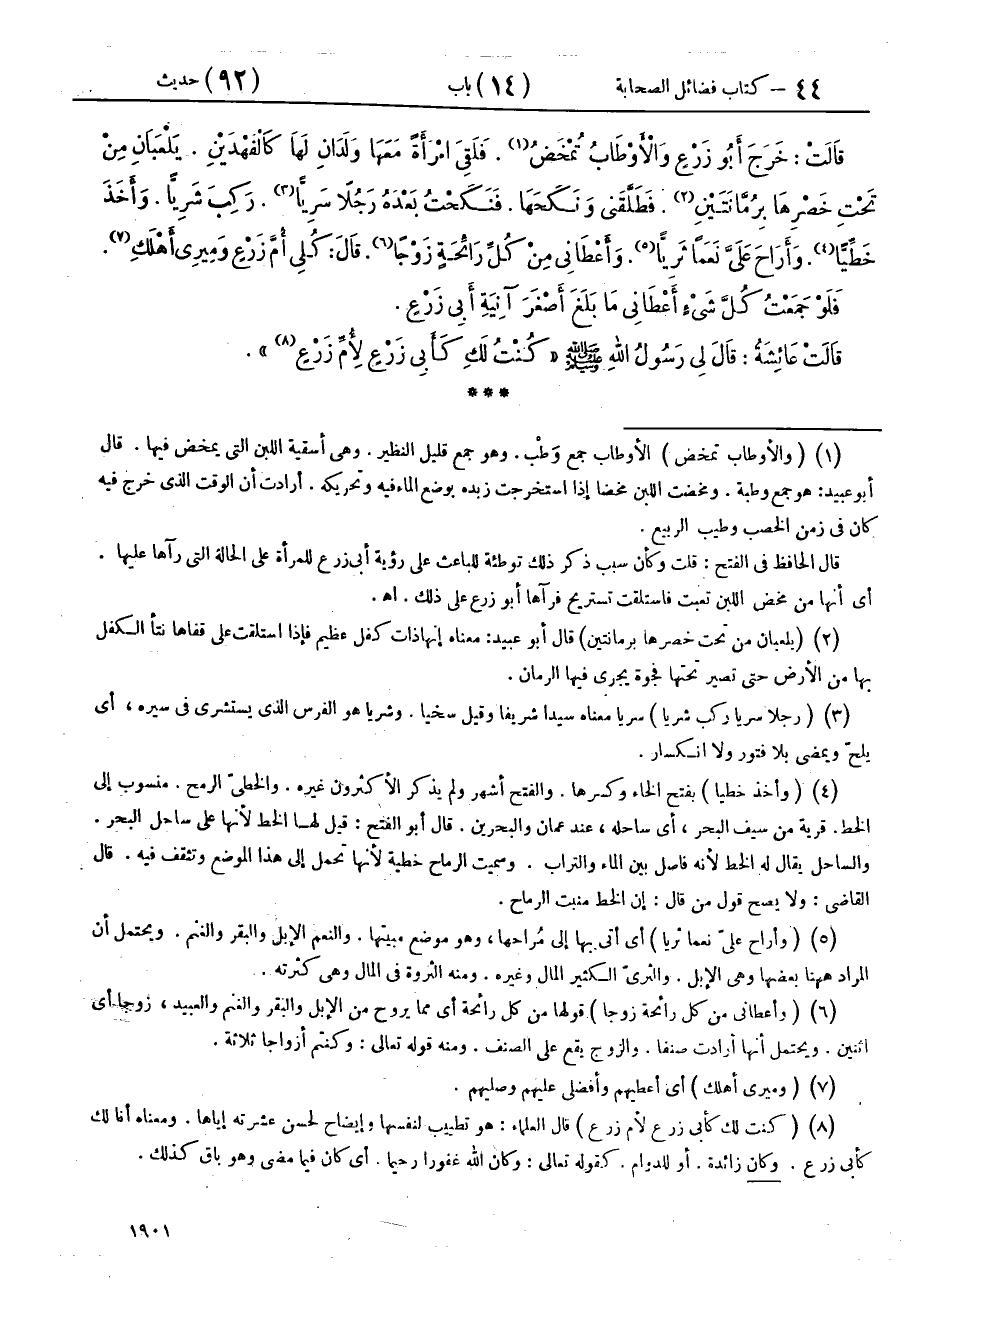 ٤٤ – كتاب فضائل الصحابة (١٤) باب (٩٢) حديث
قَالَتْ : خَرَجَ أَبُو زَرْعٍ وَالْأَوْطَابُ تُمْخَضُ(١) . فَلَقِيَ امْرَأَةً مَعَهَا وَلَدَانِ لَهَا كَالْفَهْدَيْنِ . يَلْعَبَانِ مِنْ
تَحْتِ خَصْرِهَا بِرُمَّانَتَيْنِ(٢) . فَطَلَّقَنِي وَنَكَحَهَا . فَنَكَحْتُ بَعْدَهُ رَجُلًا سَرِيًّا(٣) . رَكِبَ شَرِيًّا . وَأَخَذَ
خَطِّيًّا(٤). وَأَرَاحَ عَلَيَّ نَعَمًا ثَرِيًّا(٥). وَأَعْطَانِي مِنْ كُلِّ رَائِحَةٍ زَوْجًا(٦). قَالَ: كُلِي أُمَّ زَرْعٍ وَمِيرِي أَهْلَكِ(٧).
فَلَوْ جَمَعْتُ كُلَّ شَيْءٍ أَعْطَانِي مَا بَلَغَ أَصْغَرَ آنِيَةِ أَبِي زَرْعٍ .
قَالَتْ عَائِشَةُ : قَالَ لِي رَسُولُ اللهِ ﷺ « كُنْتُ لَكِ كَأَبِي زَرْعٍ لِأُمِّ زَرْعٍ(٨) » .
***
(١) ( والأوطاب تمخض ) الأوطاب جمع وَطْب . وهو جمع قليل النظير . وهى أسقية اللبن التى يمخض فيها . قال
أبو عبيد: هو جمع وطبة . ومخضت اللبن مخضا إذا استخرجت زبده بوضع الماء فيه وتحريكه . أرادت أن الوقت الذى خرج فيه
كان فى زمن الخصب وطيب الربيع .
قال الحافظ فى الفتح : قلت وكأن سبب ذكر ذلك توطئة للباعث على رؤية أبى زرع للمرأة على الحالة التى رآها عليها .
أى أنها من مخض اللبن تعبت فاستلقت تستريح فرآها أبو زرع على ذلك . اهـ .
(٢) (يلعبان من تحت خصرها برمانتين) قال أبو عبيد: معناه إنها ذات كفل عظيم فإذا استلقت على قفاها نتأ الكفل
بها من الأرض حتى تصير تحتها فجوة يجرى فيها الرمان .
(٣) ( رجلا سريا ركب شريا ) سريا معناه سيدا شريفا وقيل سخيا . وشريا هو الفرس الذى يستشرى فى سيره ، أى
يلحّ ويمضى بلا فتور ولا انكسار .
(٤) ( وأخذ خطيا ) بفتح الخاء وكسرها . والفتح أشهر ولم يذكر الأكثرون غيره . والخطىّ الرمح . منسوب إلى
الخط . قرية من سيف البحر ، أى ساحله ، عند عمان والبحرين . قال أبو الفتح : قيل لها الخط لأنها على ساحل البحر .
والساحل يقال له الخط لأنه فاصل بين الماء والتراب . وسميت الرماح خطية لأنها تحمل إلى هذا الموضع وتثقف فيه . قال
القاضى : ولا يصح قول من قال : إن الخط منبت الرماح .
(٥) ( وأراح علىّ نعما ثريا ) أى أتى بها إلى مُراحها ، وهو موضع مبيتها . والنعم الإبل والبقر والغنم . ويحتمل أن
المراد ههنا بعضها وهى الإبل . والثرىّ الكثير المال وغيره . ومنه الثروة فى المال وهى كثرته .
(٦) ( وأعطانى من كل رائحة زوجا ) قولها من كل رائحة أى مما يروح من الإبل والبقر والغنم والعبيد ، زوجا أى
اثنين . ويحتمل أنها أرادت صنفا . والزوج يقع على الصنف . ومنه قوله تعالى : وكنتم أزواجا ثلاثة .
(٧) ( وميرى أهلك ) أى أعطيهم وأفضلى عليهم وصليهم .
(٨) ( كنت لك كأبى زرع لأم زرع ) قال العلماء : هو تطييب لنفسها وإيضاح لحسن عشرته إياها . ومعناه أنا لك
كأبى زرع . وكان زائدة . أو للدوام . كقوله تعالى : وكان الله غفورا رحيما . أى كان فيما مضى وهو باق كذلك .
١٩٠١